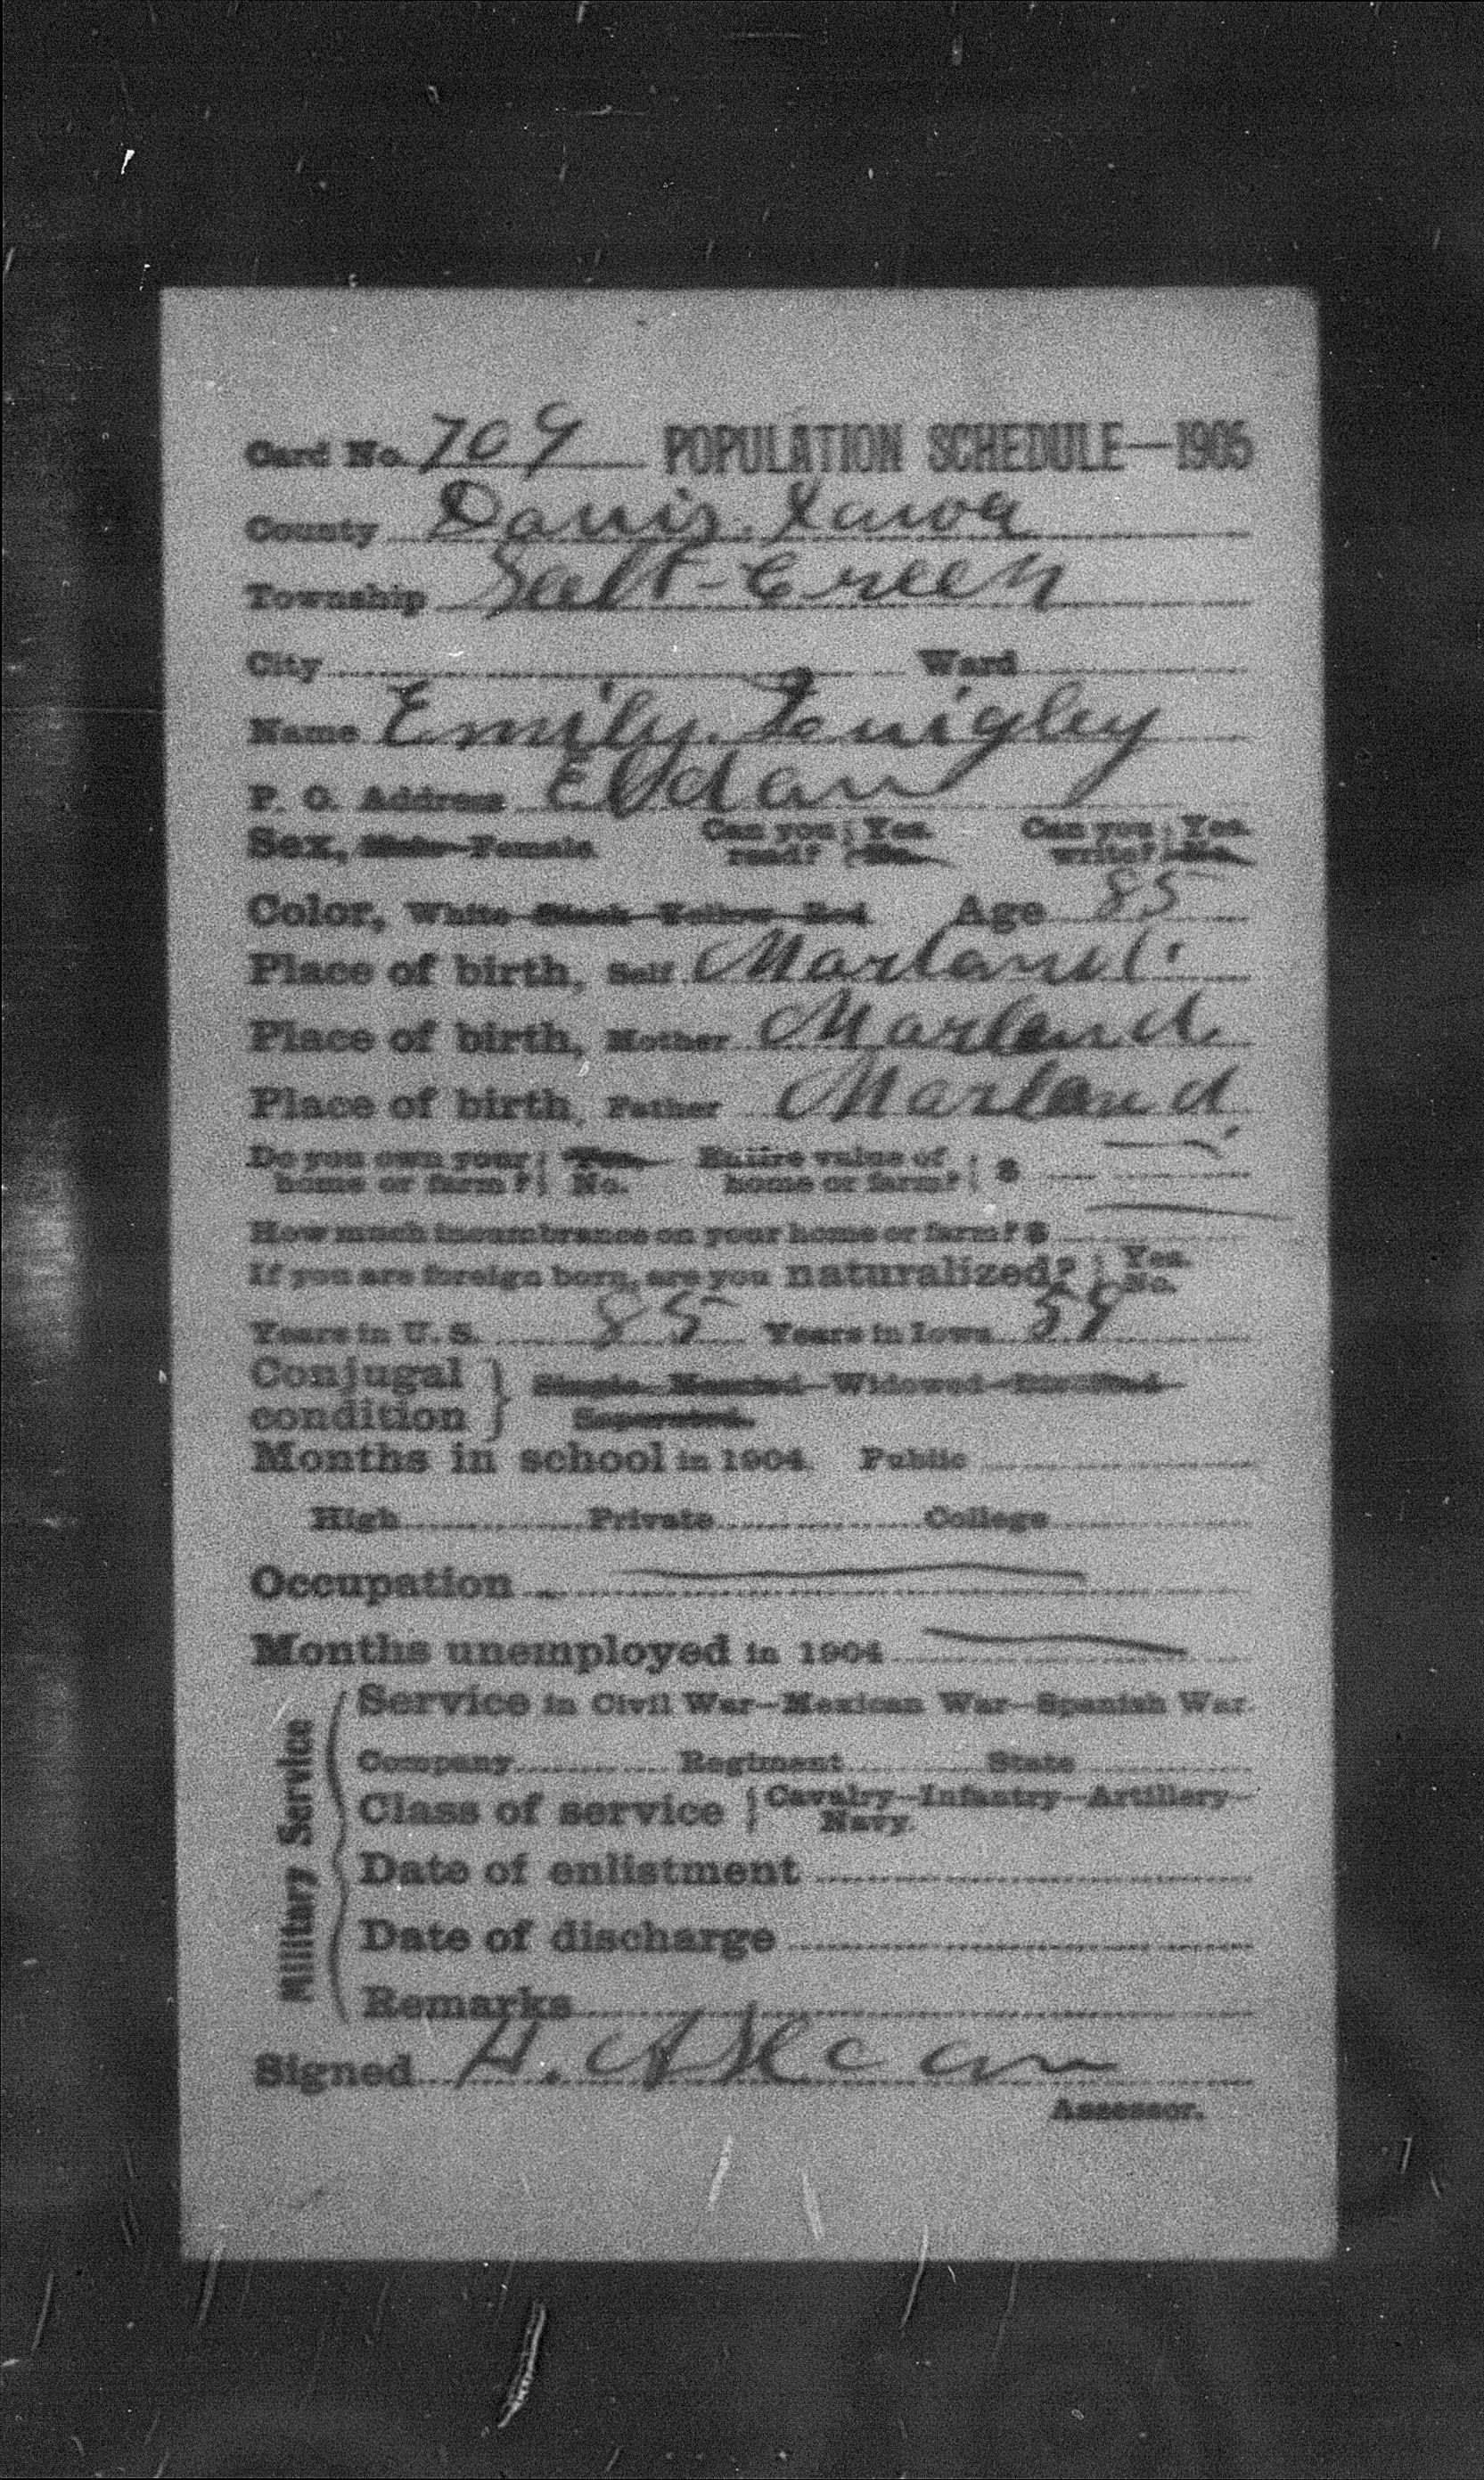 Card No. 709 POPULATION SCHEDULE—1905
County Davis, Iowa
Township Salt-Creek
City Ward
Name Emily Quigley
P. O. Address Eldan
Sex, Male—Female Can you read? Yes. No. Can you write? Yes. No.
Color, White—Black—Yellow—Red Age 85
Place of birth, Self Marland
Place of birth, Mother Marland
Place of birth, Father Marland
Do you own your home or farm? Yes. No. Entire value of home or farm? $
How much incumbrance on your home or farm? $
If you are foreign born, are you naturalized? Yes. No.
Years in U. S. 85 Years in Iowa 59
Conjugal condition Single—Married—Widowed—Divorced—
Separated.
Months in school in 1904. Public
High Private College
Occupation
Months unemployed in 1904
Military Service
Service in Civil War—Mexican War—Spanish War.
Company Regiment State
Class of service Cavalry—Infantry—Artillery—
Navy.
Date of enlistment
Date of discharge
Remarks
Signed H.
Assessor.